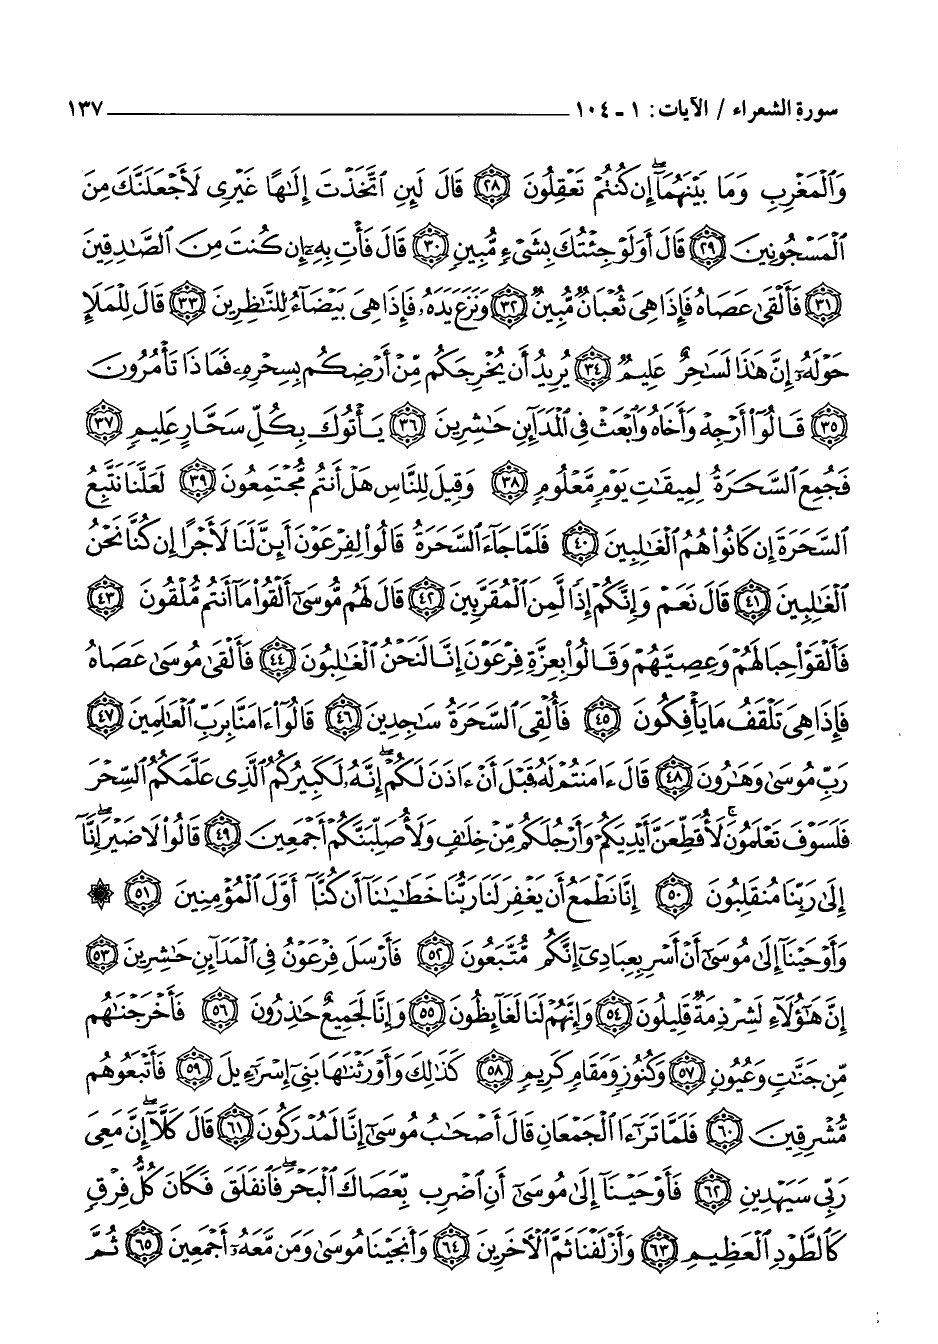 سورة الشعراء / الآيات: ١ ـ ١٠٤ ١٣٧
وَٱلْمَغْرِبِ وَمَا بَيْنَهُمَآ ۖ إِن كُنتُمْ تَعْقِلُونَ ﴿٢٨﴾ قَالَ لَئِنِ ٱتَّخَذْتَ إِلَٰهًا غَيْرِى لَأَجْعَلَنَّكَ مِنَ
ٱلْمَسْجُونِينَ ﴿٢٩﴾ قَالَ أَوَلَوْ جِئْتُكَ بِشَىْءٍ مُّبِينٍ ﴿٣٠﴾ قَالَ فَأْتِ بِهِۦٓ إِن كُنتَ مِنَ ٱلصَّٰدِقِينَ
﴿٣١﴾ فَأَلْقَىٰ عَصَاهُ فَإِذَا هِىَ ثُعْبَانٌ مُّبِينٌ ﴿٣٢﴾ وَنَزَعَ يَدَهُۥ فَإِذَا هِىَ بَيْضَآءُ لِلنَّٰظِرِينَ ﴿٣٣﴾ قَالَ لِلْمَلَإِ
حَوْلَهُۥٓ إِنَّ هَٰذَا لَسَٰحِرٌ عَلِيمٌ ﴿٣٤﴾ يُرِيدُ أَن يُخْرِجَكُم مِّنْ أَرْضِكُم بِسِحْرِهِۦ فَمَاذَا تَأْمُرُونَ
﴿٣٥﴾ قَالُوٓا۟ أَرْجِهْ وَأَخَاهُ وَٱبْعَثْ فِى ٱلْمَدَآئِنِ حَٰشِرِينَ ﴿٣٦﴾ يَأْتُوكَ بِكُلِّ سَحَّارٍ عَلِيمٍ ﴿٣٧﴾
فَجُمِعَ ٱلسَّحَرَةُ لِمِيقَٰتِ يَوْمٍ مَّعْلُومٍ ﴿٣٨﴾ وَقِيلَ لِلنَّاسِ هَلْ أَنتُم مُّجْتَمِعُونَ ﴿٣٩﴾ لَعَلَّنَا نَتَّبِعُ
ٱلسَّحَرَةَ إِن كَانُوا۟ هُمُ ٱلْغَٰلِبِينَ ﴿٤٠﴾ فَلَمَّا جَآءَ ٱلسَّحَرَةُ قَالُوا۟ لِفِرْعَوْنَ أَئِنَّ لَنَا لَأَجْرًا إِن كُنَّا نَحْنُ
ٱلْغَٰلِبِينَ ﴿٤١﴾ قَالَ نَعَمْ وَإِنَّكُمْ إِذًا لَّمِنَ ٱلْمُقَرَّبِينَ ﴿٤٢﴾ قَالَ لَهُم مُّوسَىٰٓ أَلْقُوا۟ مَآ أَنتُم مُّلْقُونَ ﴿٤٣﴾
فَأَلْقَوْا۟ حِبَالَهُمْ وَعِصِيَّهُمْ وَقَالُوا۟ بِعِزَّةِ فِرْعَوْنَ إِنَّا لَنَحْنُ ٱلْغَٰلِبُونَ ﴿٤٤﴾ فَأَلْقَىٰ مُوسَىٰ عَصَاهُ
فَإِذَا هِىَ تَلْقَفُ مَا يَأْفِكُونَ ﴿٤٥﴾ فَأُلْقِىَ ٱلسَّحَرَةُ سَٰجِدِينَ ﴿٤٦﴾ قَالُوٓا۟ ءَامَنَّا بِرَبِّ ٱلْعَٰلَمِينَ ﴿٤٧﴾
رَبِّ مُوسَىٰ وَهَٰرُونَ ﴿٤٨﴾ قَالَ ءَامَنتُمْ لَهُۥ قَبْلَ أَنْ ءَاذَنَ لَكُمْ ۖ إِنَّهُۥ لَكَبِيرُكُمُ ٱلَّذِى عَلَّمَكُمُ ٱلسِّحْرَ
فَلَسَوْفَ تَعْلَمُونَ ۚ لَأُقَطِّعَنَّ أَيْدِيَكُمْ وَأَرْجُلَكُم مِّنْ خِلَٰفٍ وَلَأُصَلِّبَنَّكُمْ أَجْمَعِينَ ﴿٤٩﴾ قَالُوا۟ لَا ضَيْرَ ۖ إِنَّآ
إِلَىٰ رَبِّنَا مُنقَلِبُونَ ﴿٥٠﴾ إِنَّا نَطْمَعُ أَن يَغْفِرَ لَنَا رَبُّنَا خَطَٰيَٰنَآ أَن كُنَّآ أَوَّلَ ٱلْمُؤْمِنِينَ ﴿٥١﴾ ۞
وَأَوْحَيْنَآ إِلَىٰ مُوسَىٰٓ أَنْ أَسْرِ بِعِبَادِىٓ إِنَّكُم مُّتَّبَعُونَ ﴿٥٢﴾ فَأَرْسَلَ فِرْعَوْنُ فِى ٱلْمَدَآئِنِ حَٰشِرِينَ ﴿٥٣﴾
إِنَّ هَٰٓؤُلَآءِ لَشِرْذِمَةٌ قَلِيلُونَ ﴿٥٤﴾ وَإِنَّهُمْ لَنَا لَغَآئِظُونَ ﴿٥٥﴾ وَإِنَّا لَجَمِيعٌ حَٰذِرُونَ ﴿٥٦﴾ فَأَخْرَجْنَٰهُم
مِّن جَنَّٰتٍ وَعُيُونٍ ﴿٥٧﴾ وَكُنُوزٍ وَمَقَامٍ كَرِيمٍ ﴿٥٨﴾ كَذَٰلِكَ وَأَوْرَثْنَٰهَا بَنِىٓ إِسْرَٰٓءِيلَ ﴿٥٩﴾ فَأَتْبَعُوهُم
مُّشْرِقِينَ ﴿٦٠﴾ فَلَمَّا تَرَٰٓءَا ٱلْجَمْعَانِ قَالَ أَصْحَٰبُ مُوسَىٰٓ إِنَّا لَمُدْرَكُونَ ﴿٦١﴾ قَالَ كَلَّآ ۖ إِنَّ مَعِىَ
رَبِّى سَيَهْدِينِ ﴿٦٢﴾ فَأَوْحَيْنَآ إِلَىٰ مُوسَىٰٓ أَنِ ٱضْرِب بِّعَصَاكَ ٱلْبَحْرَ ۖ فَٱنفَلَقَ فَكَانَ كُلُّ فِرْقٍ
كَٱلطَّوْدِ ٱلْعَظِيمِ ﴿٦٣﴾ وَأَزْلَفْنَا ثَمَّ ٱلْءَاخَرِينَ ﴿٦٤﴾ وَأَنجَيْنَا مُوسَىٰ وَمَن مَّعَهُۥٓ أَجْمَعِينَ ﴿٦٥﴾ ثُمَّ